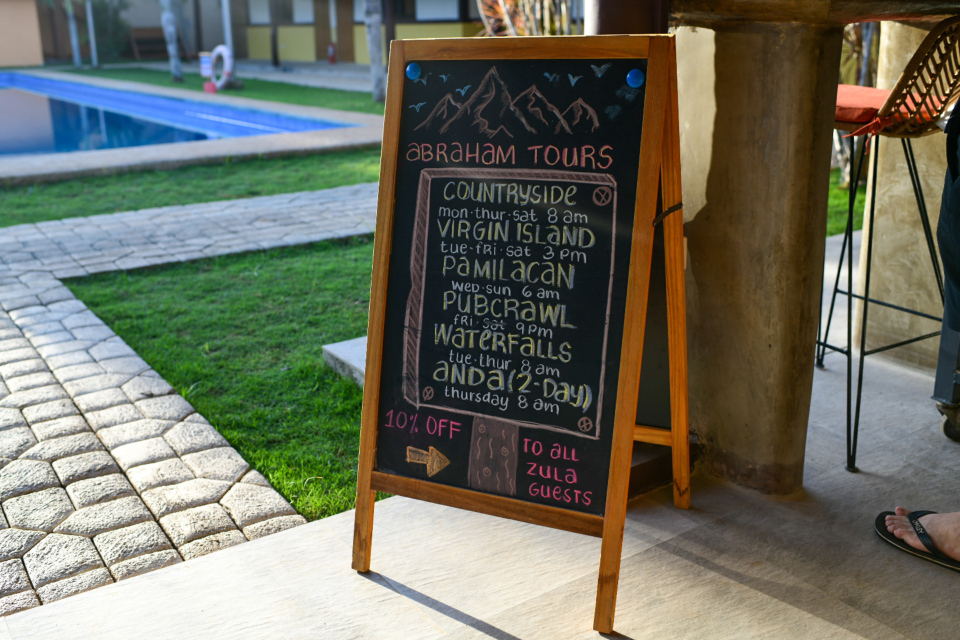 ABRAHAM TOURS
COUNTRYSIDE
mon·thur·sat 8 am
VIRGIN ISLAND
tue·fri·sat 3 pm
PAMILACAN
wed·sun 6 am
PUBCRAWL
fri·sat 9pm
WATERFALLS
tue·thur 8 am
ANDA (2-DAY)
thursday 8 am
10% OFF
TO ALL
ZULA
GUESTS